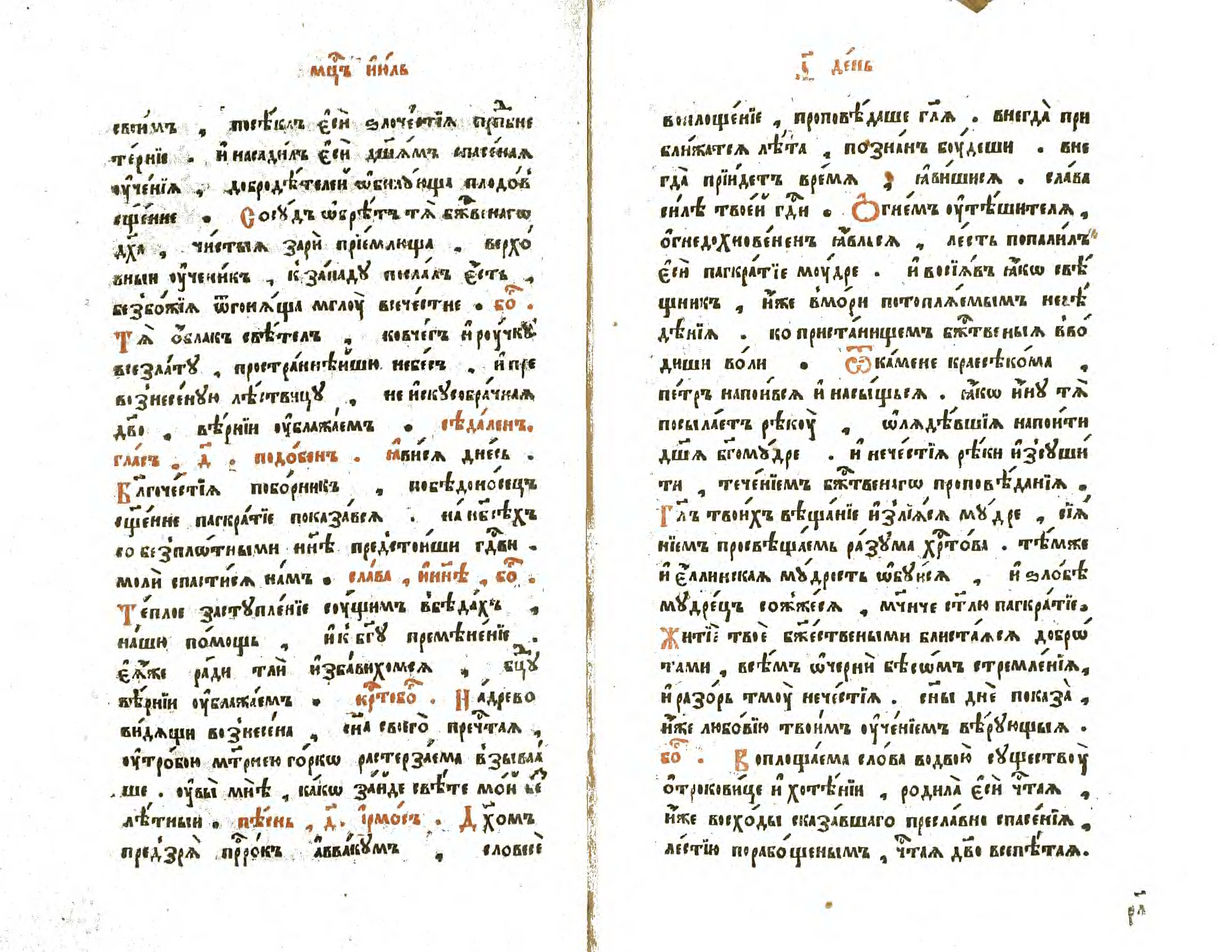 мцⷭ҇ъ і҆ю́ль
свои́мъ , посѣ́клъ є҆сѝ ѕлоче́стїѧ прпⷣбне
те́рнїе . и҆ насади́лъ є҆сѝ дш҃а́мъ спасе́наѧ
ᲂу҆че́нїѧ , добродѣ́телей ѡ҆би́лꙋюща плодо́в
сщ҃е́нне . Сосꙋ́дъ ѡ҆брѣ́тъ тѧ̀ бж҃твенагѡ
дх҃а , чи́стыѧ зарѝ прїе́млюща . верхо́
вныи ᲂу҆чени́къ , к за́падꙋ посла́лъ є҆́сть ,
безбо́жїѧ ѿгонѧ́ща мглоу̀ всече́стне . бо҃ .
Тѧ̀ ѻ҆́блакъ свѣ́телъ , ковче́гъ и҆ рꙋ́чкꙋ
всезла́тꙋ , простра́ннѣйшю небе́съ , и҆ пре
вознесе́нꙋю лѣ́ствицꙋ , не и҆скꙋсобра́чнаѧ
дв҃о , вѣ́рнїи ᲂу҆блажа́емъ . сѣда́ленъ.
гла́съ . д҃ . подо́бенъ . ꙗ҆ви́сѧ дне́сь .
Бл҃гоче́стїѧ побо́рникъ , побѣдоно́сецъ
сщ҃е́нне пагкра́тїе показа́всѧ . на нб҃сѣ́хъ
со безпло́тными нн҃ѣ предстои́ши гдⷭ҇ви .
молѝ спасти́сѧ на́мъ . сла́ва , и҆ нн҃ѣ , бо҃ .
Те́плое застꙋпле́нїе сꙋ́щимъ в бѣда́хъ ,
на́шю по́мощь , и҆ к бг҃ꙋ премѣне́нїе .
є҆ѧ́же ра́ди тлѝ и҆зба́вихомсѧ , бц҃ꙋ
вѣ́рнїи ᲂу҆блажа́емъ . крⷭ҇тобо҃ . На древо
ви́дѧщи вознесе́на , сн҃а своего̀ пречⷭ҇таѧ ,
ᲂу҆тро́бою мт҃рнею го́ркѡ растерза́ема взыва́а
ше . ᲂу҆вы̀ мнѣ̀ , ка́кѡ за́йде свѣ́те мо́й бе
лѣ́тныи . пѣ́снь , д҃. і҆рмо́съ . Дх҃омъ
предзрѧ̀ прⷪ҇ро́къ а҆ввакꙋ́мъ , словесѐ
і҃ де́нь
воплоще́нїе , проповѣ́даше гл҃ѧ . внегда̀ при
бли́жатсѧ лѣ́та , позна́нъ бꙋ́деши . вне
гда̀ прїи́детъ вре́мѧ , ꙗ҆ви́шисѧ . сла́ва
си́лѣ твое́й гдⷭ҇и . Ѻ҆гне́мъ ᲂу҆тѣ́шителѧ ,
ѻ҆гнедохнове́ненъ ꙗ҆́вльсѧ , ле́сть попали́лъ
є҆сѝ пагкра́тїе мꙋ́дре . и҆ восїѧ́въ ꙗ҆́кѡ свѣ́
щникъ , и҆́же в мо́ри потоплѧ́емымъ невѣ́
дѣнїѧ . ко приста́нищемъ бж҃твеныѧ вво́
диши во́ли . Ѿ ка́мене краесѣко́ма ,
пе́тръ напои́всѧ и҆ насы́щьсѧ . ꙗ҆́кѡ и҆́нꙋ тѧ̀
посыла́етъ рѣкоу̀ , ѡ҆лѧдѣ́вшїѧ напои́ти
дш҃ѧ бг҃омꙋ́дре . и҆ нече́стїѧ рѣ́ки и҆зсꙋши́
ти , тече́нїемъ бж҃твенагѡ проповѣ́данїѧ .
Гл҃ъ твои́хъ вѣща́нїе и҆злїѧ́сѧ мꙋ́дре , сїѧ́
нїемъ просвѣща́емь ра́зꙋма хрⷭ҇то́ва . тѣ́мже
и҆ є҆́ллинскаѧ мꙋ́дрость ѡ҆бꙋѝсѧ , и҆ ѕло́бѣ
мꙋдре́цъ сожже́сѧ , мч҃нче ст҃лю пагкра́тїе.
Житїѐ твоѐ бж҃е́ствеными блиста́ѧсѧ добрѡ́
тами , всѣ́мъ ѡ҆чернѝ бѣсѡ́мъ стремле́нїѧ,
и҆ разо́рь тмоу̀ нече́стїѧ . сн҃ы днѐ показа̀ ,
и҆́же любо́вїю твои́мъ ᲂу҆че́нїемъ вѣ́рꙋющыѧ .
бо҃ . Воплоща́ема сло́ва водвою̀ сꙋществоу̀
ѻ҆трокови́це и҆ хотѣ́нїи , родила̀ є҆сѝ чⷭ҇таѧ ,
и҆́же восхо́ды сказа́вшаго пресла́вно спасе́нїѧ ,
ле́стїю порабоще́нымъ , чⷭ҇таѧ дв҃о всепѣ́таѧ.
рл҃